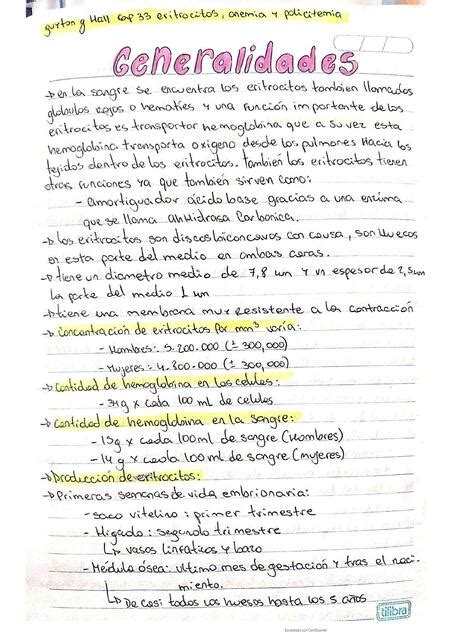 guyton y Hall cap 33 eritrocitos, anemia y policitemia
Generalidades
→ en la sangre se encuentra los eritrocitos tambien llamados
globulos rojos o hematies y una función importante de los
eritrocitos es transportar hemoglobina que a su vez esta
hemoglobina transporta oxigeno desde los pulmones Hacia los
tejidos dentro de los eritrocitos. También los eritrocitos tienen
otras funciones ya que también sirven como:
- amortiguador ácido base gracias a una enzima
que se llama anhidrasa Carbonica.
→ los eritrocitos son discos biconcavos con causa, son Huecos
en esta parte del medio en ambas caras.
→ tiene un diametro medio de 7,8 um y un espesor de 2,5um
la parte del medio 1 um
→ tiene una membrana muy resistente a la contracción
→ Concentración de eritrocitos por mm³ varia:
- Hombres: 5.200.000 (± 300,000)
- Mujeres: 4.700.000 (± 300,000)
→ Cantidad de hemoglobina en las celulas:
- 34g x cada 100 ml de celulas
→ Cantidad de hemoglobina en la sangre:
- 15g x cada 100ml de sangre (Hombres)
- 14 g x cada 100ml de sangre (mujeres)
→ Producción de eritrocitos:
→ Primeras semanas de vida embrionaria:
- saco vitelino: primer trimestre
- Higado: segundo trimestre
↳ vasos linfaticos y bazo
- Médula ósea: ultimo mes de gestación y tras el naci-
miento.
↳ De casi todos los huesos hasta los 5 años
tilibra
Escaneado con CamScanner